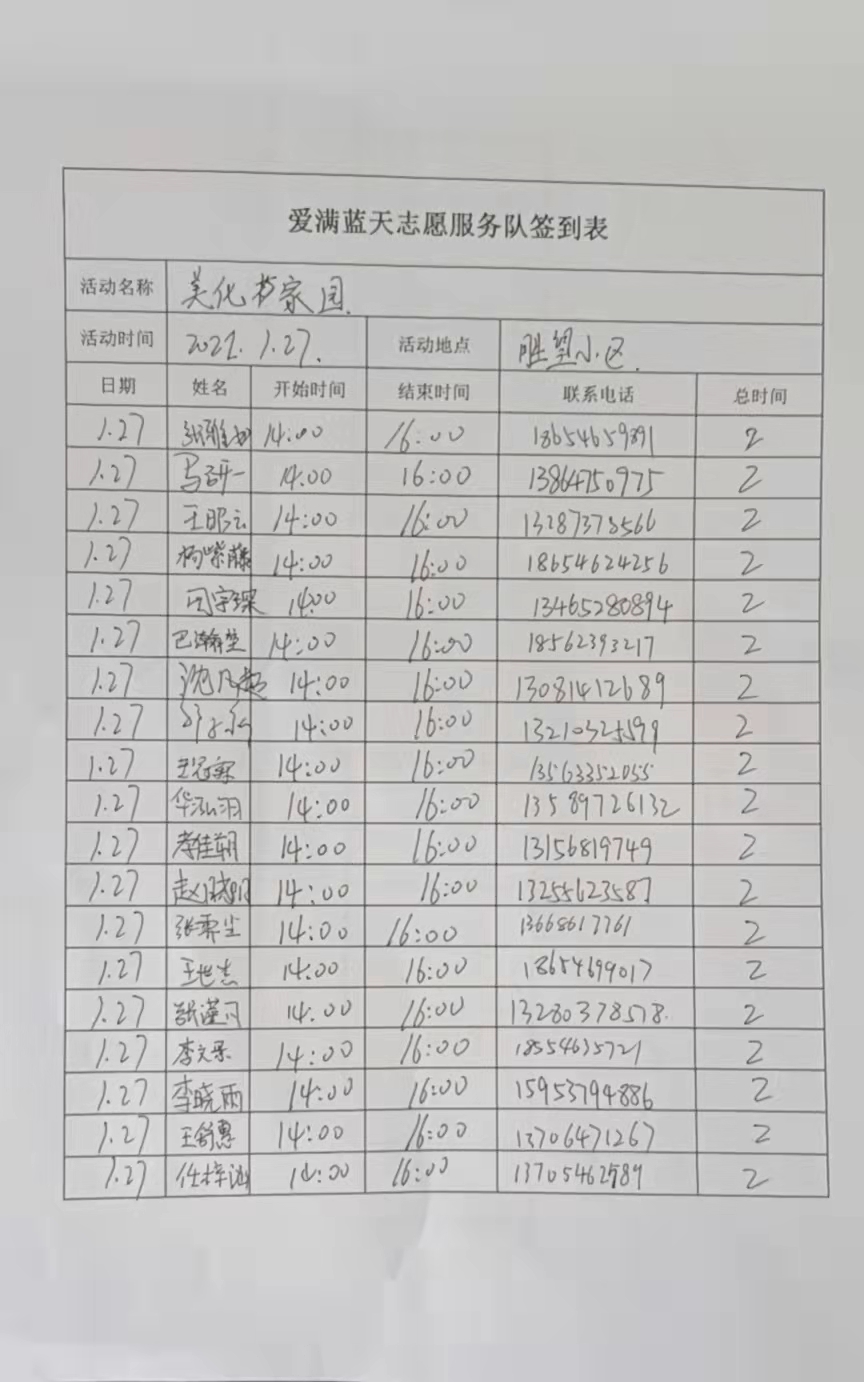 爱满蓝天志愿服务队签到表
活动名称 美化 家园.
活动时间 2021.1.27. 活动地点 胜望小区.
日期 姓名 开始时间 结束时间 联系电话 总时间
1.27 14:00 16:00 18654659891 2
1.27 马研一 14:00 16:00 13864750975 2
1.27 王昭云 14:00 16:00 13287378566 2
1.27 杨紫藤 14:00 16:00 18654624256 2
1.27 闫宇琛 14:00 16:00 13465280894 2
1.27 巴瀚笙 14:00 16:00 18562393217 2
1.27 沈凡超 14:00 16:00 13081412689 2
1.27 14:00 16:00 2
1.27 王冠霖 14:00 16:00 13563352055 2
1.27 华泓羽 14:00 16:00 13589726132 2
1.27 李佳朝 14:00 16:00 13156819749 2
1.27 赵晓明 14:00 16:00 13255623587 2
1.27 张霁尘 14:00 16:00 13668617761 2
1.27 王世杰 14:00 16:00 18654699017 2
1.27 14:00 16:00 13280378578. 2
1.27 李文录 14:00 16:00 18554635721 2
1.27 李晓雨 14:00 16:00 15953794886 2
1.27 王舒惠 14:00 16:00 13706471267 2
1.27 任梓汕 14:00 16:00 13705462589 2